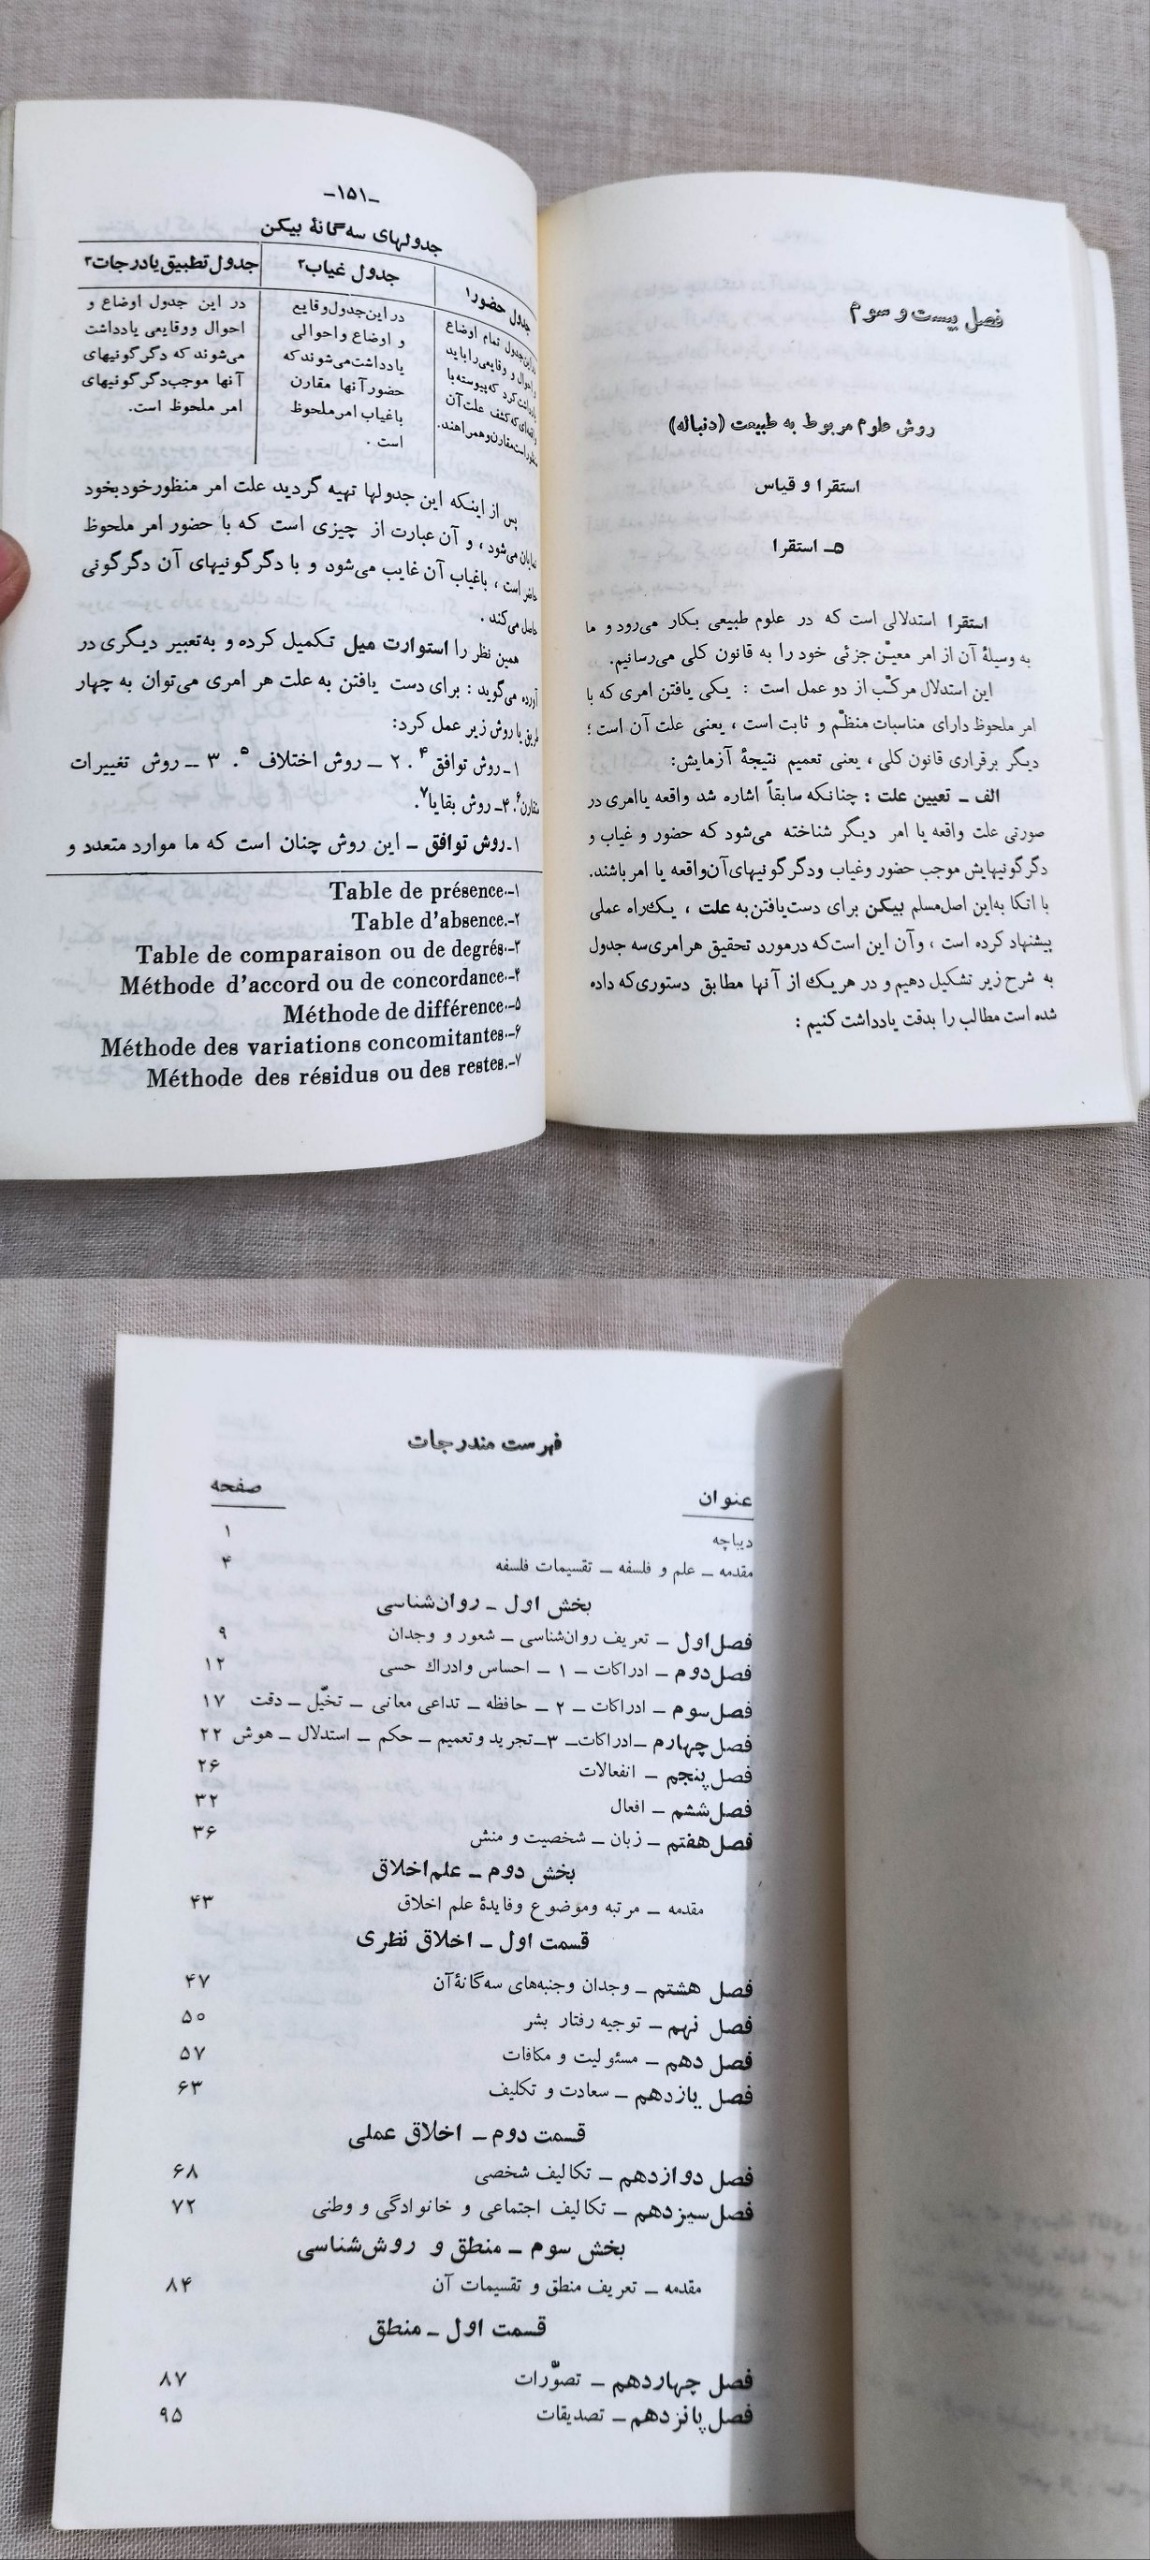 فصل بیست و سوم
روش علوم مربوط به طبیعت (دنباله)
استقرا و قیاس
۵ـ استقرا
استقرا استدلالی است که در علوم طبیعی بکار می‌رود و ما
به وسیلهٔ آن از امر معیّن جزئی خود را به قانون کلی می‌رسانیم.
این استدلال مرکّب از دو عمل است : یکی یافتن امری که با
امر ملحوظ دارای مناسبات منظّم و ثابت است ، یعنی علت آن است ؛
دیگر برقراری قانون کلی ، یعنی تعمیم نتیجهٔ آزمایش:
الف ـ تعیین علت : چنانکه سابقاً اشاره شد واقعه یا امری در
صورتی علت واقعه یا امر دیگر شناخته می‌شود که حضور و غیاب و
دگرگونیهایش موجب حضور و غیاب و دگرگونیهای آن واقعه یا امر باشند.
با اتکا به این اصل مسلم بیکن برای دست یافتن به علت ، یک راه عملی
پیشنهاد کرده است ، و آن این است که در مورد تحقیق هر امری سه جدول
به شرح زیر تشکیل دهیم و در هر یک از آنها مطابق دستوری که داده
شده است مطالب را بدقت یادداشت کنیم :
ـ۱۵۱ـ
جدولهای سه گانهٔ بیکن
جدول حضور۱
جدول غیاب۲
جدول تطبیق یا درجات۳
در این جدول تمام اوضاع
و احوال و وقایعی را باید
یادداشت کرد که پیوسته با
واقعه‌ای که کشف علت آن
منظور است مقارن و همراهند.
در این جدول وقایع
و اوضاع و احوالی
یادداشت می‌شوند که
حضور آنها مقارن
با غیاب امر ملحوظ
است .
در این جدول اوضاع و
احوال و وقایعی یادداشت
می‌شوند که دگرگونیهای
آنها موجب دگرگونیهای
امر ملحوظ است.
پس از اینکه این جدولها تهیه گردید علت امر منظور خود بخود
نمایان می‌شود ، و آن عبارت از چیزی است که با حضور امر ملحوظ
حاضر است ، با غیاب آن غایب می‌شود و با دگرگونیهای آن دگرگونی
حاصل می‌کند .
همین نظر را استوارت میل تکمیل کرده و به تعبیر دیگری در
آورده می‌گوید : برای دست یافتن به علت هر امری می‌توان به چهار
طریق یا روش زیر عمل کرد:
۱ـ روش توافق۴ . ۲ ـ روش اختلاف۵ . ۳ ـ روش تغییرات
متقارن۶. ۴ـ روش بقایا۷.
۱ـ روش توافق ـ این روش چنان است که ما موارد متعدد و
۱ـ Table de présence.
۲ـ Table d'absence.
۳ـ Table de comparaison ou de degrés.
۴ـ Méthode d'accord ou de concordance.
۵ـ Méthode de différence.
۶ـ Méthode des variations concomitantes.
۷ـ Méthode des résidus ou des restes.
فهرست مندرجات
عنوان صفحه
دیباچه ۱
مقدمه ـ علم و فلسفه ـ تقسیمات فلسفه ۴
بخش اول ـ روان‌شناسی
فصل اول ـ تعریف روان‌شناسی ـ شعور و وجدان ۹
فصل دوم ـ ادراکات ـ ۱ ـ احساس و ادراك حسی ۱۲
فصل سوم ـ ادراکات ـ ۲ ـ حافظه ـ تداعی معانی ـ تخیّل ـ دقت ۱۷
فصل چهارم ـ ادراکات ـ ۳ ـ تجرید و تعمیم ـ حکم ـ استدلال ـ هوش ۲۲
فصل پنجم ـ انفعالات ۲۶
فصل ششم ـ افعال ۳۲
فصل هفتم ـ زبان ـ شخصیت و منش ۳۶
بخش دوم ـ علم اخلاق
مقدمه ـ مرتبه و موضوع و فایدهٔ علم اخلاق ۴۳
قسمت اول ـ اخلاق نظری
فصل هشتم ـ وجدان و جنبه‌های سه گانهٔ آن ۴۷
فصل نهم ـ توجیه رفتار بشر ۵۰
فصل دهم ـ مسئولیت و مکافات ۵۷
فصل یازدهم ـ سعادت و تکلیف ۶۳
قسمت دوم ـ اخلاق عملی
فصل دوازدهم ـ تکالیف شخصی ۶۸
فصل سیزدهم ـ تکالیف اجتماعی و خانوادگی و وطنی ۷۲
بخش سوم ـ منطق و روش‌شناسی
مقدمه ـ تعریف منطق و تقسیمات آن ۸۴
قسمت اول ـ منطق
فصل چهاردهم ـ تصوّرات ۸۷
فصل پانزدهم ـ تصدیقات ۹۵